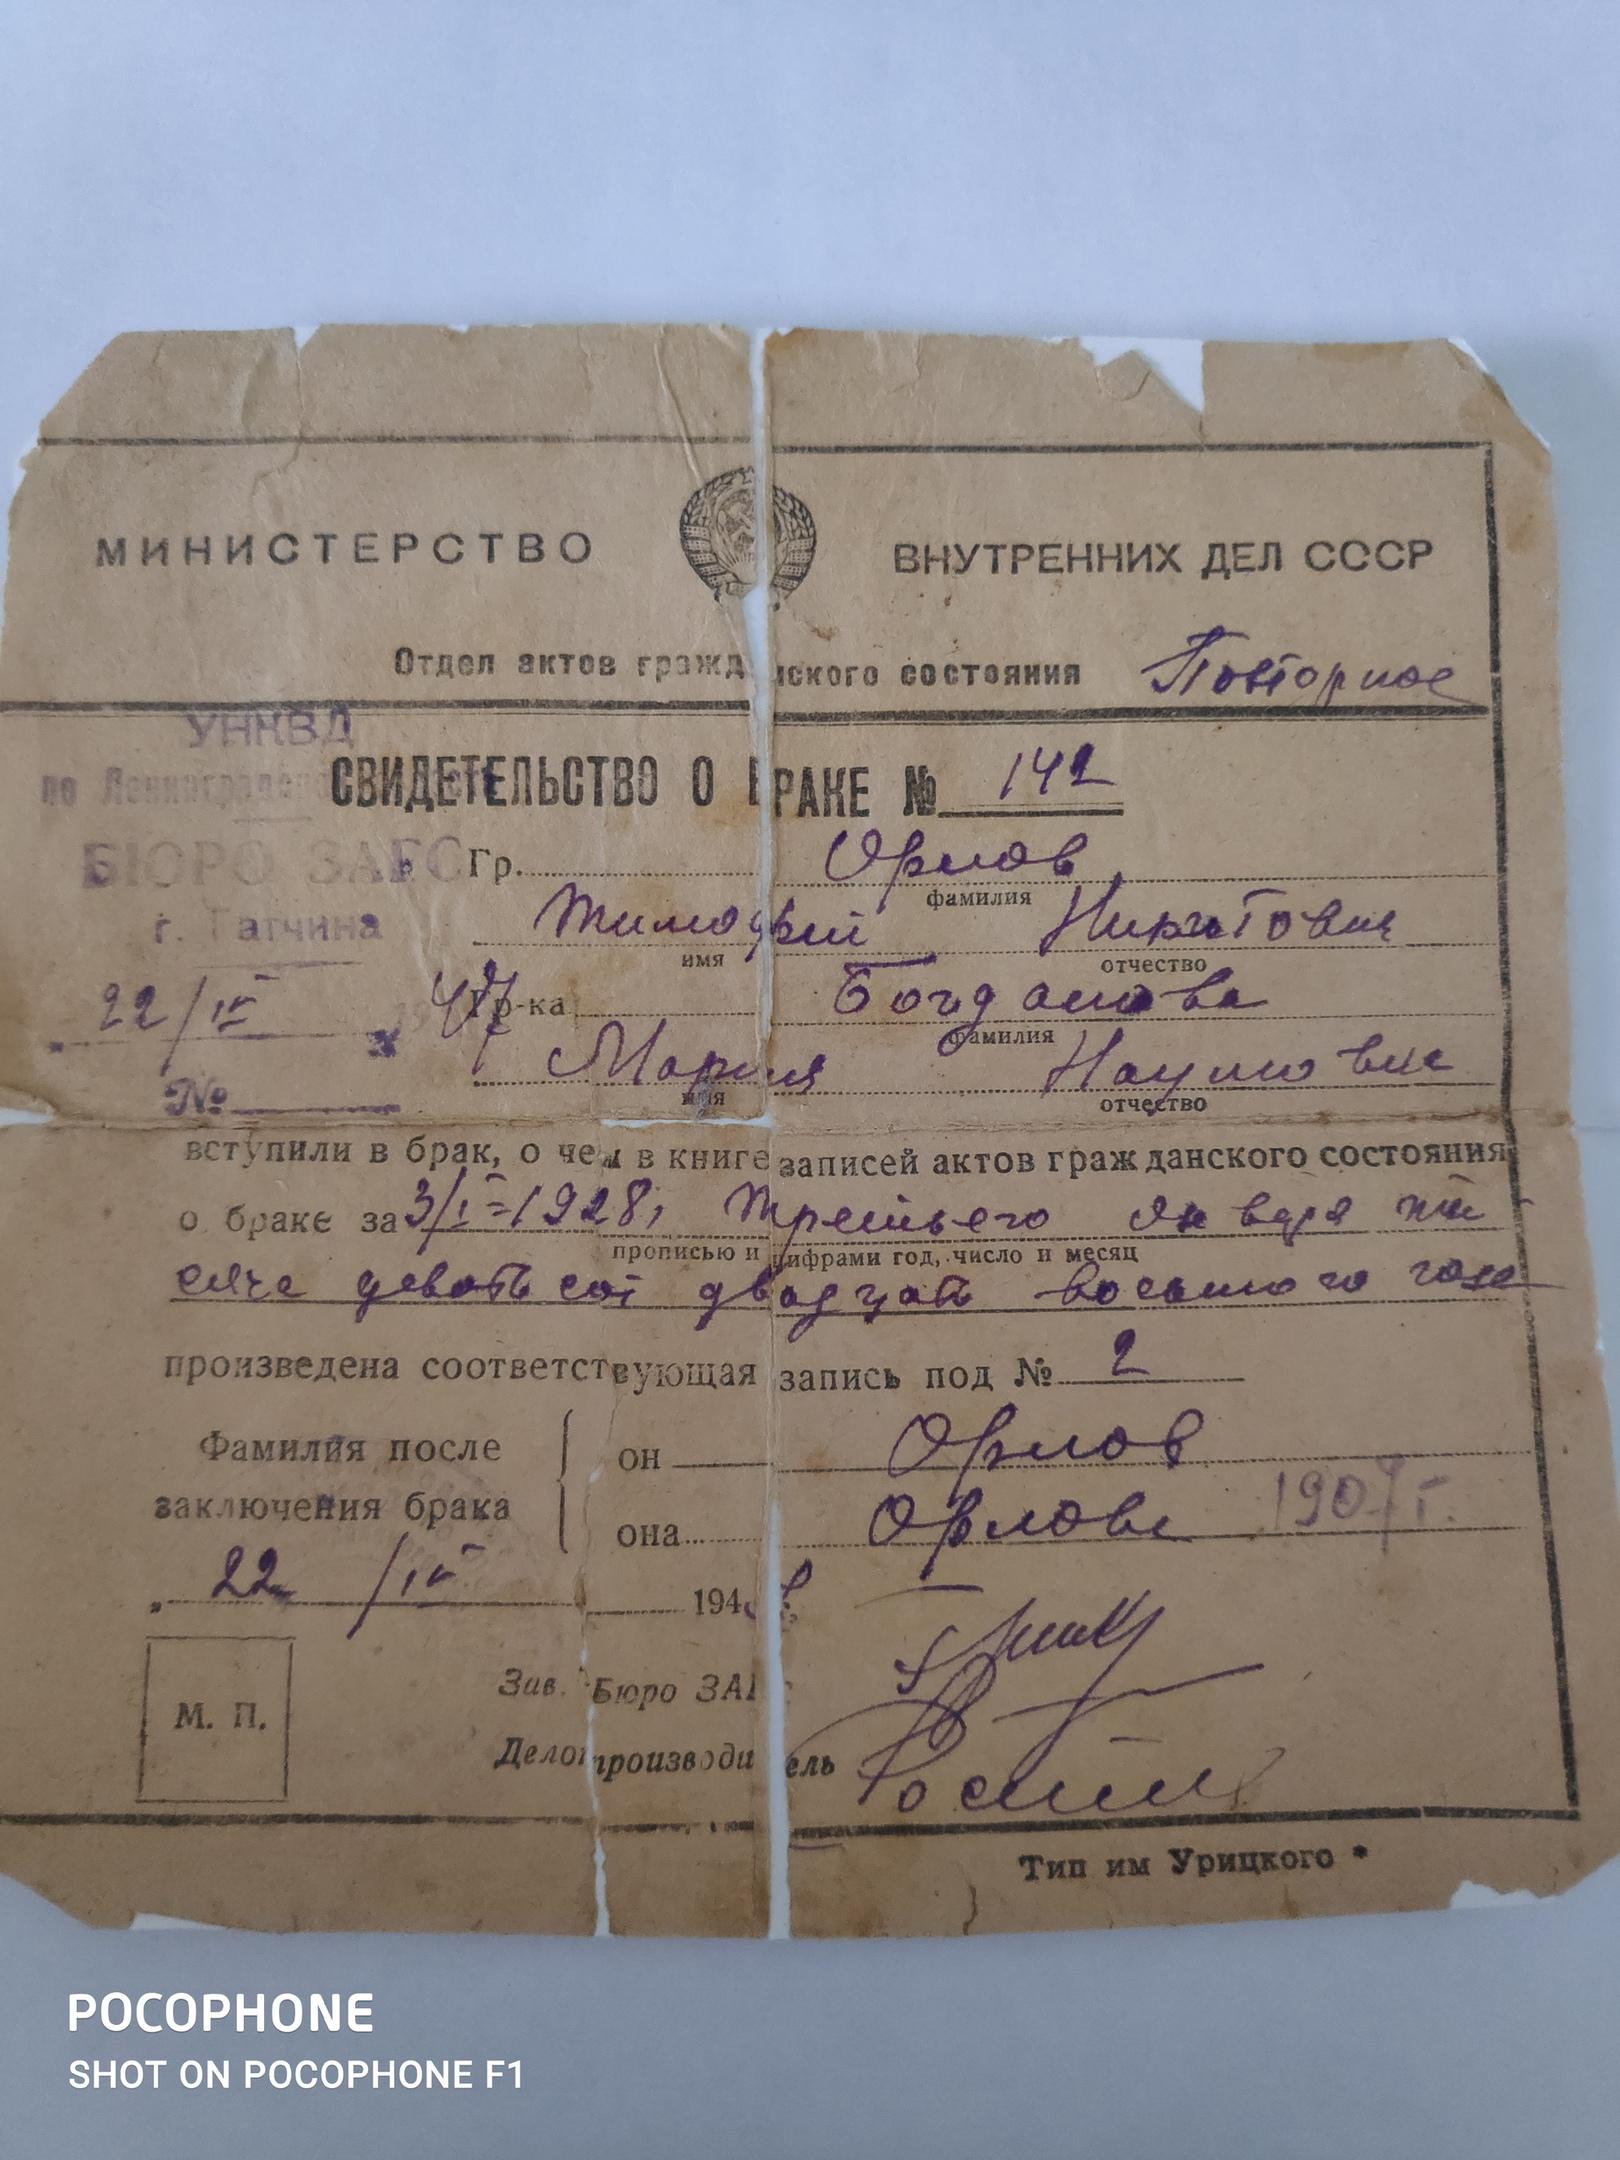 МИНИСТЕРСТВО ВНУТРЕННИХ ДЕЛ СССР
Отдел актов гражданского состояния Повторное
УНКВД
по Ленинградской
СВИДЕТЕЛЬСТВО О БРАКЕ № 142
БЮРО ЗАГС
г. Гатчина
22/IV 47
№
Гр. Орлов
фамилия
Тимофей Никитович
имя отчество
Гр-ка Богданова
фамилия
Мария Наумовна
имя отчество
вступили в брак, о чем в книге записей актов гражданского состояния
о браке за 3/I-1928, Третьего Января ты
прописью и цифрами год, число и месяц
сяча девятьсот двадцать восьмого года
произведена соответствующая запись под № 2
Фамилия после заключения брака
он Орлов
она Орлова 1907 г.
„ 22 /IV 194
М. П.
Зав. Бюро ЗАГС
Делопроизводитель
Тип им Урицкого *
POCOPHONE
SHOT ON POCOPHONE F1